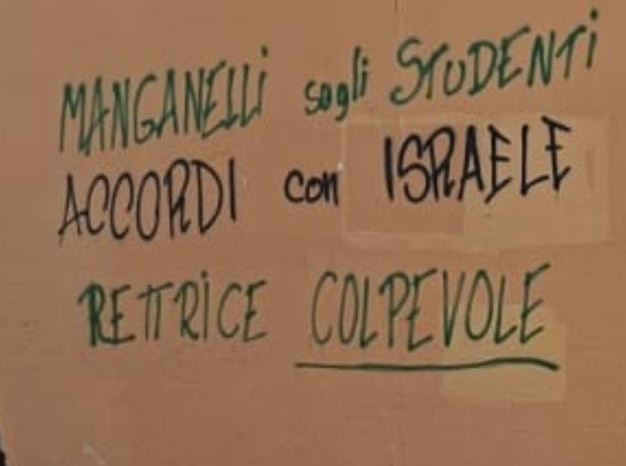 MANGANELLI sogli STUDENTI
ACCORDI con ISRAELE
RETTRICE COLPEVOLE